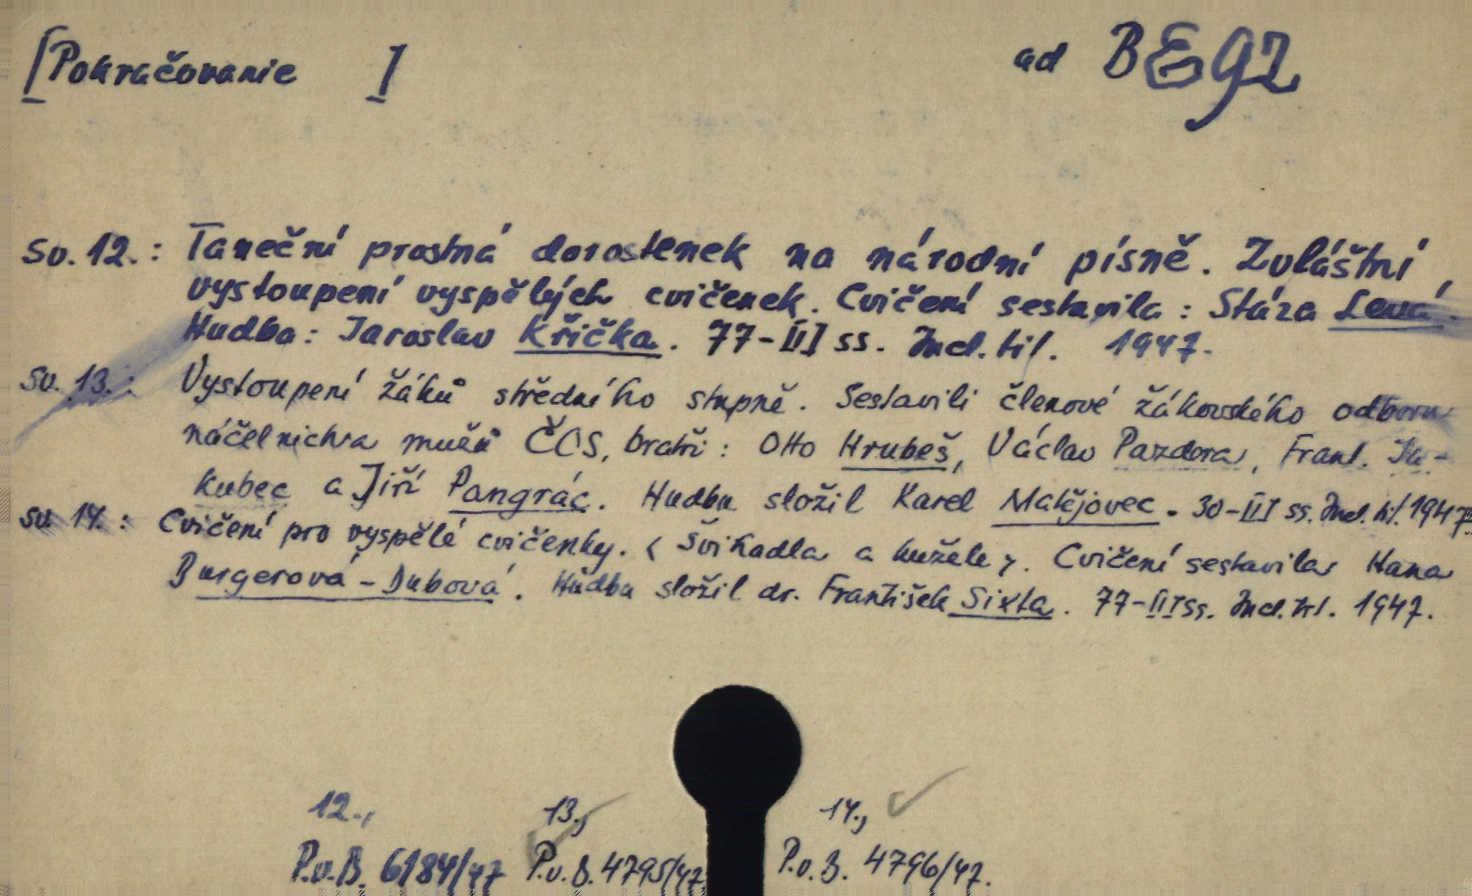 [Pokračovanie ] ad BE92
Sv. 12.: Taneční prostná dorostenek na národní písně. Zvláštní
vystoupení vyspělých cvičenek. Cvičení sestavila: Stáza Levá.
Hudba: Jaroslav Křička. 77-III ss. Incl. tit. 1947.
Sv. 13.: Vystoupení žáků středního stupně. Sestavili členové žákovského odboru
náčelnictva mužů ČOS, bratři: Otto Hrubeš, Václav Pazdora, Frant. Ja-
kubec a Jiří Pangrác. Hudbu složil Karel Matějovec. 30-III ss. Incl. tit. 1947
Sv. 14.: Cvičení pro vyspělé cvičenky. (Švihadla a kužele). Cvičení sestavila Hana
Burgerová-Dubová. Hudbu složil dr. František Sixta. 77-III ss. Incl. tit. 1947.
12., 13., 14.,
P.v.B. 6184/47 P.v.B. 4795/47 P.v.B. 4796/47.